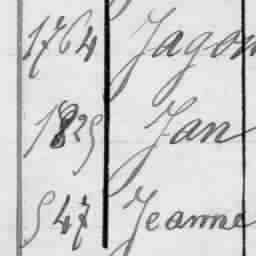 1764 Jagou
1829 Jan
547 Jeanne